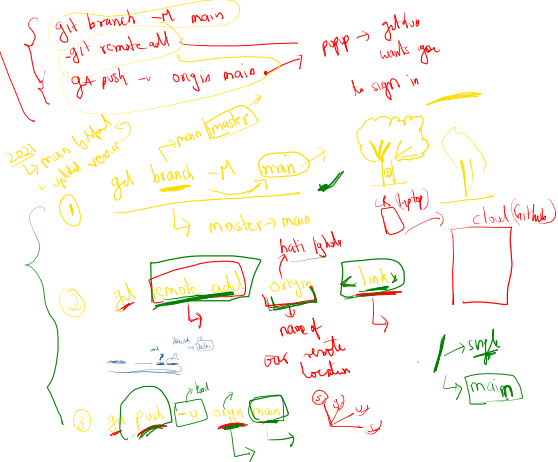 git branch -M main
-git remote add
git push -u origin main
popup → github
wants you
to sign in
2021
main
updated version
main master
① git branch -M main
master → main
(Laptop)
cloud (Github)
② git remote add origin <link>
name of
our remote
location
single
main
③ git push -u origin main